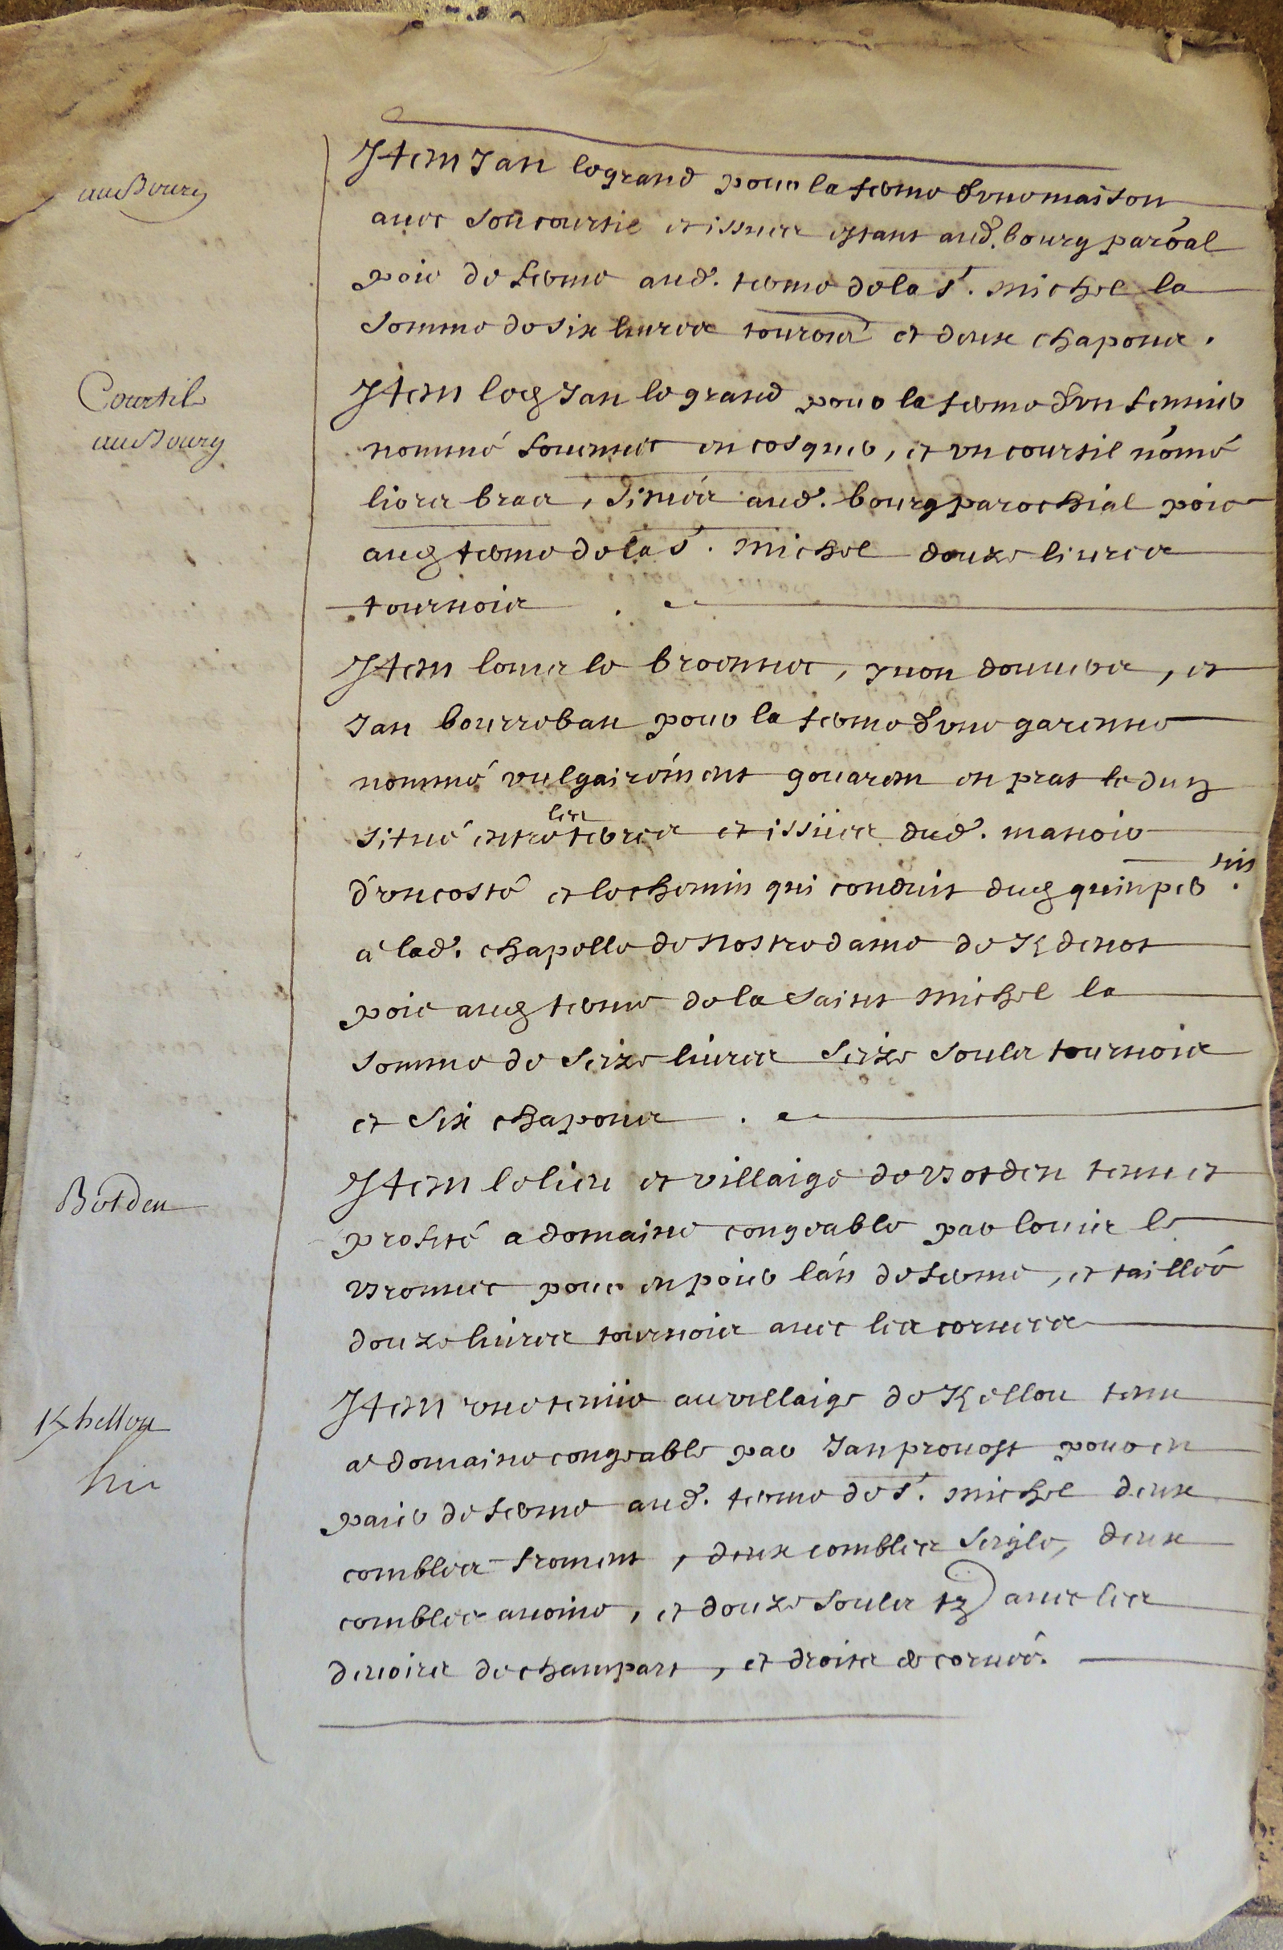 au Bourg
Item Jan legrand pour la ferme d'une maison
avec son courtil et issues estant aud. bourg paroal
poie de ferme aud. terme de la st. michel la
somme de six livres tournois et deux chapons.
Courtil
au Bourg
Item led Jan legrand pour la ferme d'un
nommé en cosquer, et un courtil nomé
liors bras, situés aud. bourg parochial poie
aud terme de la st. michel douze livres
tournois.
Item louis le broennec, yvon, et
Jan bourreban pour la ferme d'une garenne
nommé vulgairement gouarem en prat
situé entre les terres et issües dud. manoir
d'un costé et le chemin qui conduit dud quimper
à lad. chapelle de nostre dame de K denot
poie aud terme de la saint michel la
somme de seize livres seize souls tournois
et six chapons.
Botden
Item le lieu et villaige de Botden tenu et
profité a domaine congeable par louis le
Bronnec pour en poier l'an de ferme, et taillée
douze livres tournois avec les corvees
K hellou
Item une tenüe au villaige de K ellou tenu
a domaine congeable par Jan provost pour en
paier de ferme aud. terme de st. michel deux
combles froment, deux combles seigle, deux
combles avoine, et douze souls tz avec les
devoirs de champart, et droits & corvée.